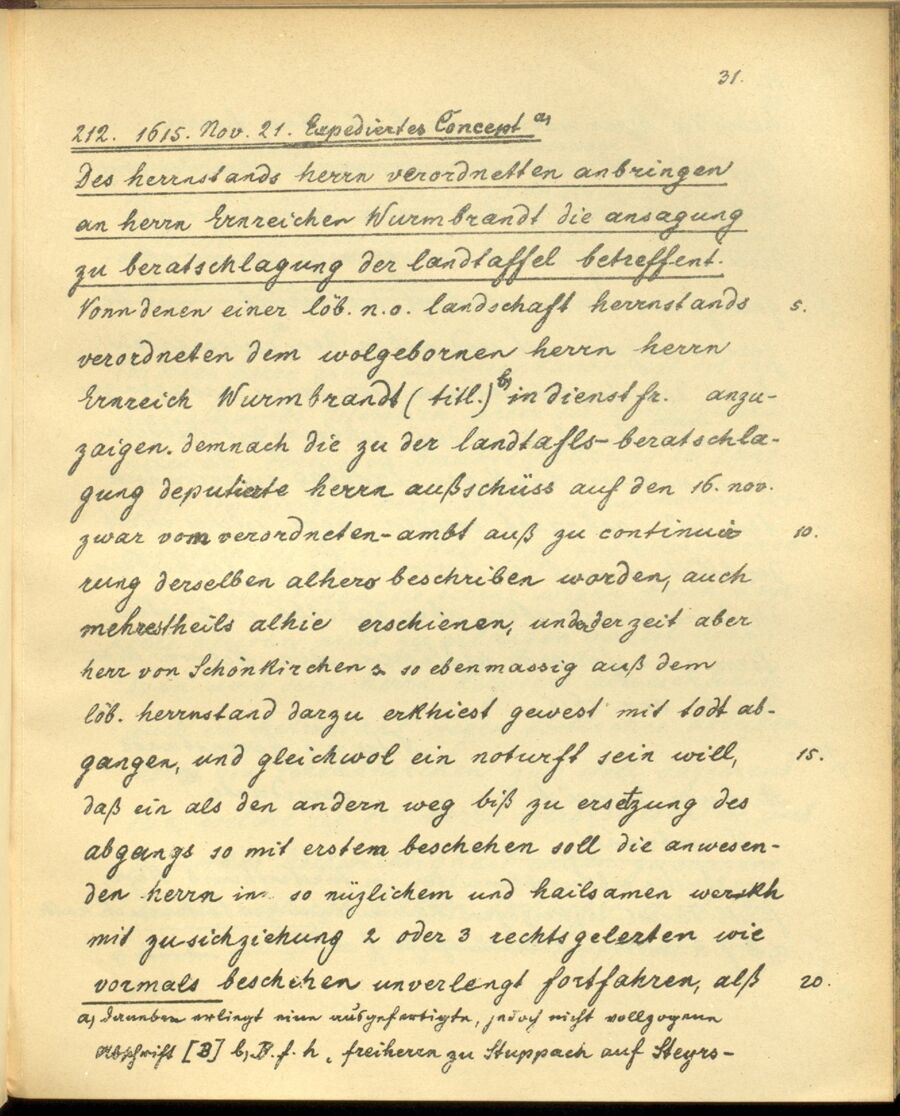 31.
212. 1615. Nov. 21. Expediertes Concept a)
Des herrnstands herrn verordnetten anbringen
an herrn Ernreichen Wurmbrandt die ansagung
zu beratschlagung der landtaffel betreffent.
Vonn denen einer löb. n.o. landschaft herrnstands 5.
verordneten dem wolgebornen herrn herrn
Ernreich Wurmbrandt (titl.) b) in dienst fr. anzu-
zaigen. demnach die zu der landtafls-beratschla-
gung deputierte herrn außschüss auf den 16. nov.
zwar vom verordneten-ambt auß zu continuie 10.
rung derselben alhero beschriben worden, auch
mehrestheils alhie erschienen, und derzeit aber
herr von Schönkirchen so ebenmassig auß dem
löb. herrnstand darzu erkhiest gewest mit todt ab-
gangen, und gleichwol ein noturft sein will, 15.
daß ein als den andern weg biß zu ersetzung des
abgangs so mit erstem beschehen soll die anwesen-
den herrn in so nüzlichem und hailsamen werkh
mit zusichziehung 2 oder 3 rechtsgelerten wie
vormals beschehen unverlengt fortfahren, alß 20.
a) Daneben erliegt eine ausgefertigte, jedoch nicht vollzogene
Abschrift [B] b) B. f. h, freiherrn zu Stuppach auf Steyrs-